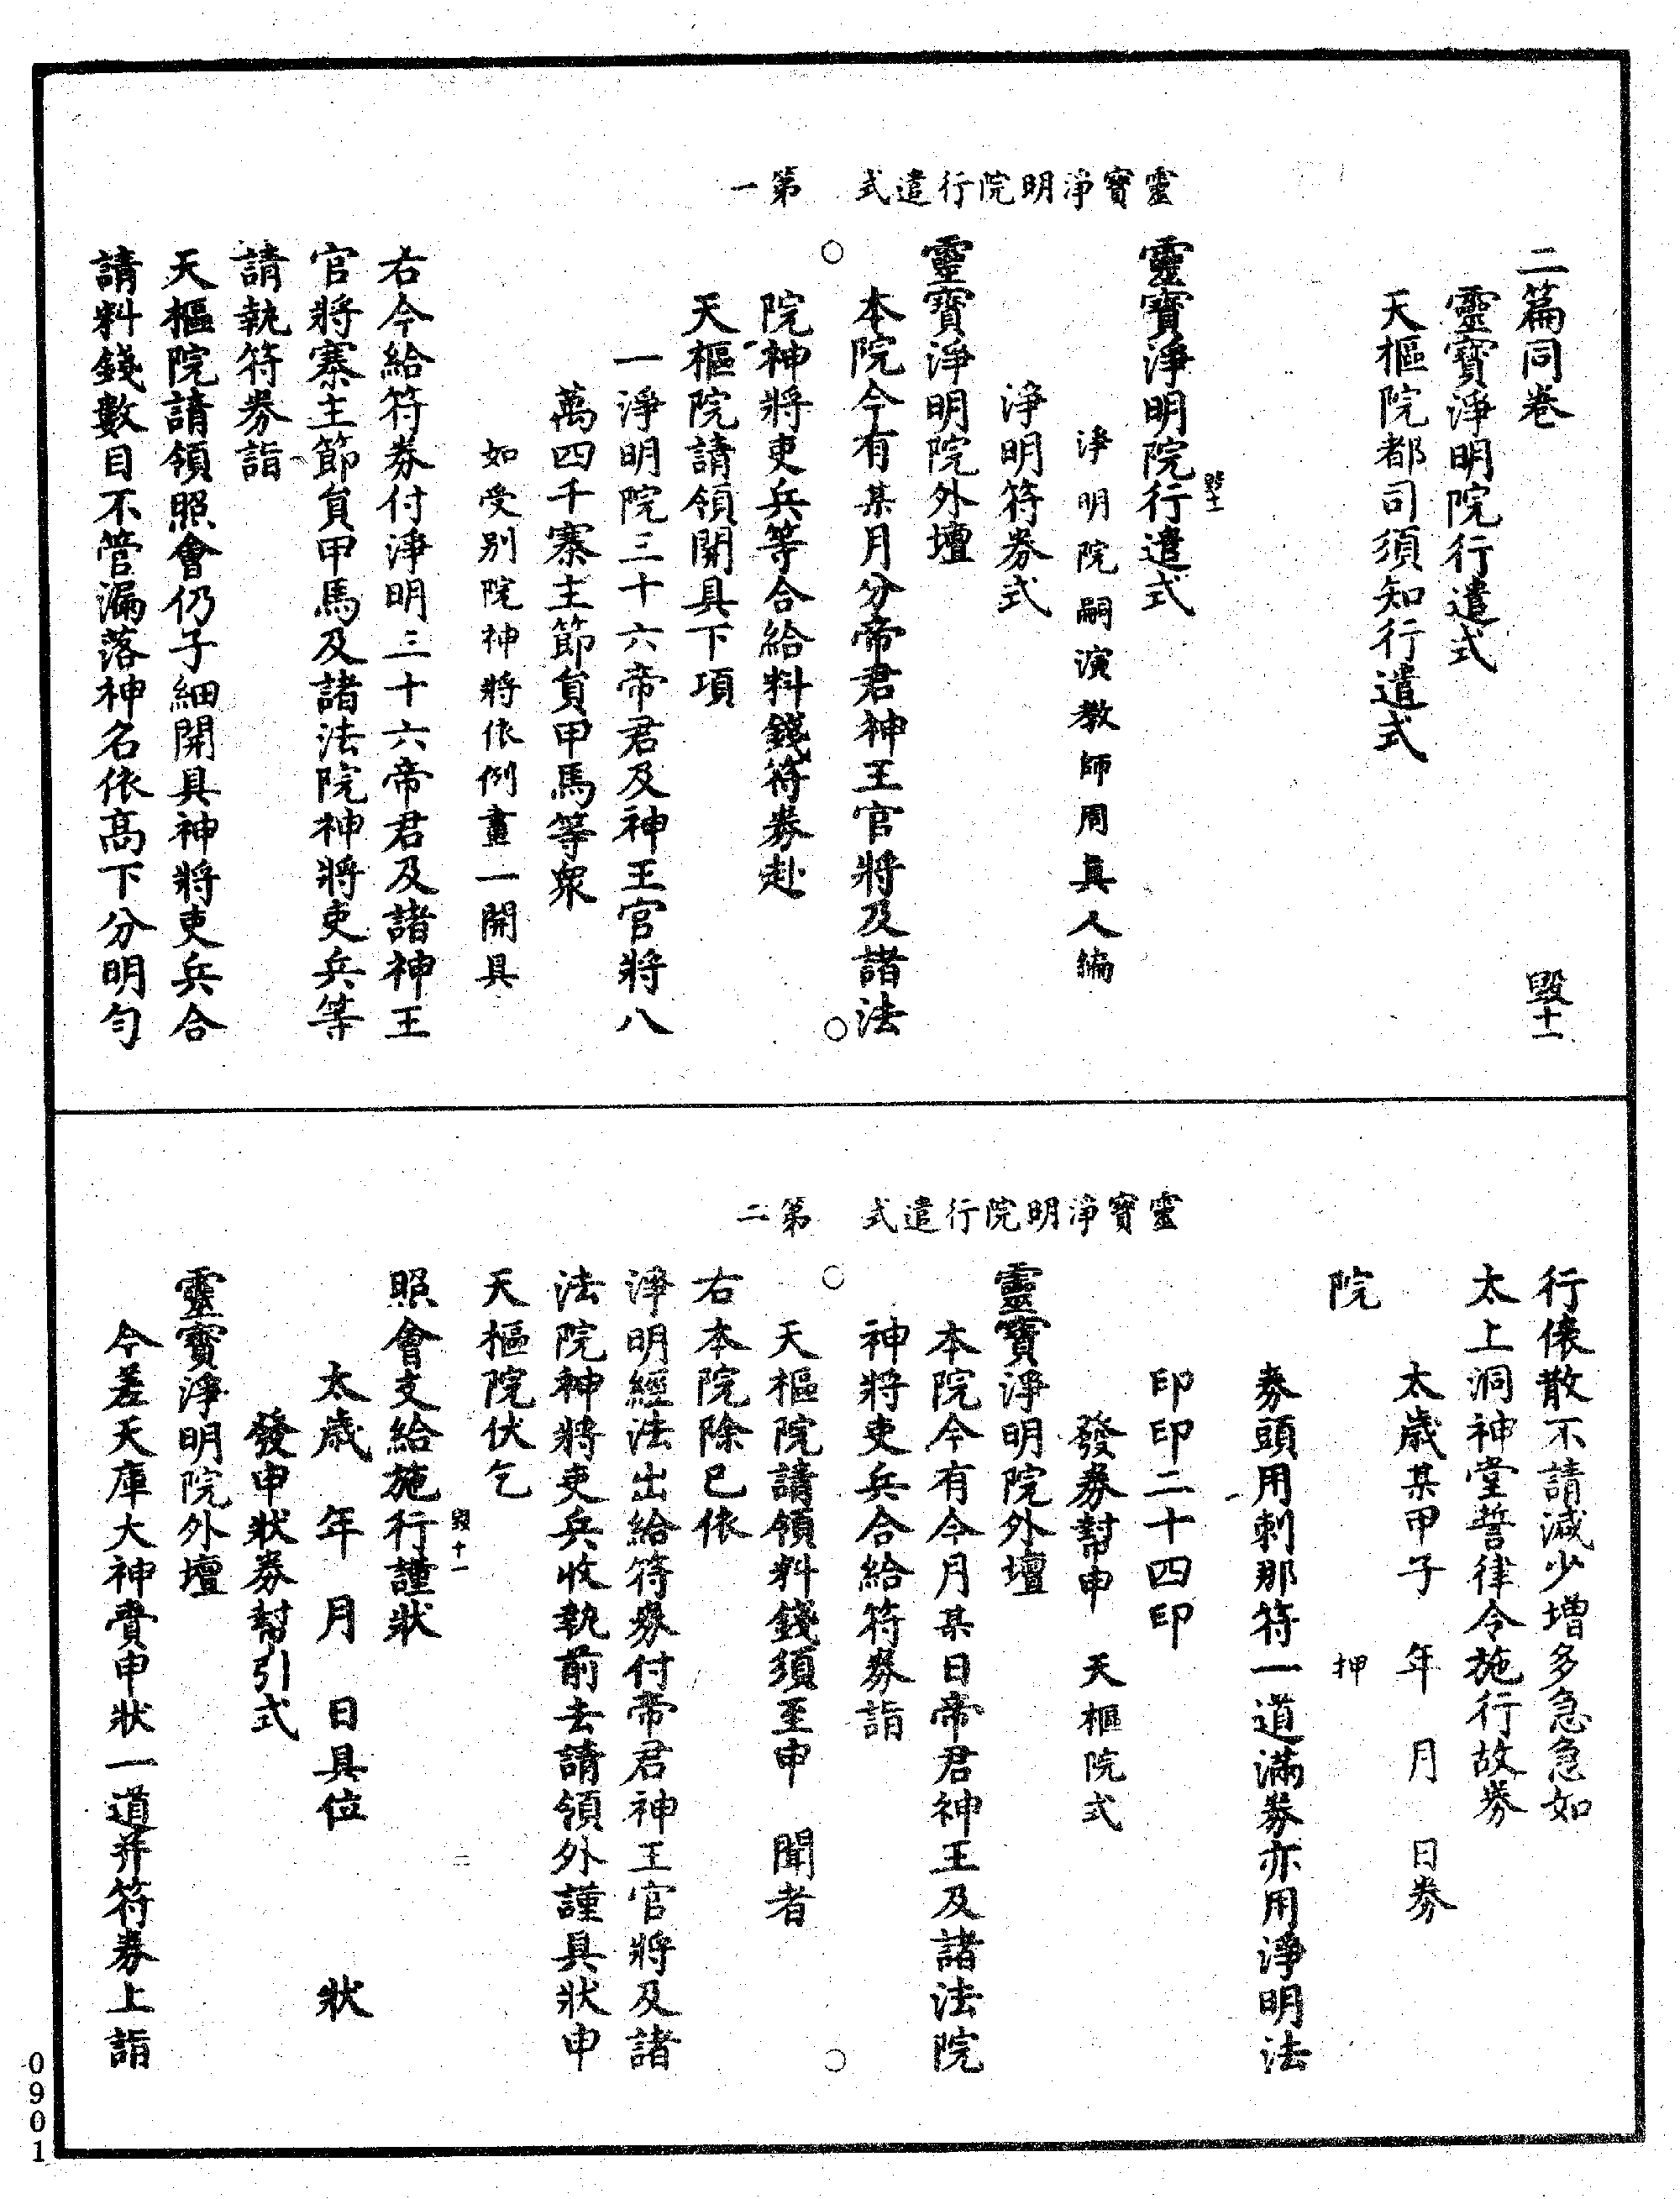 二篇同卷　毀十一
靈寶淨明院行遣式
天樞院都司須知行遣式
毀十一
靈寶淨明院行遣式　第一
靈寶淨明院行遣式
淨明院嗣演教師周真人編
淨明符券式
靈寶淨明院外壇
本院今有某月分帝君神王官將及諸法
院神將吏兵等合給料錢符券赴
天樞院請領開具下項
一淨明院三十六帝君及神王官將八
萬四千寨主節員甲馬等眾
如受別院神將依例畫一開具
右今給符券付淨明三十六帝君及諸神王
官將寨主節員甲馬及諸法院神將吏兵等
請執符券詣
天樞院請領照會仍子細開具神將吏兵合
請料錢數目不管漏落神名依高下分明勻
靈寶淨明院行遣式　第二
行俵散不請減少增多急急如
太上洞神堂誓律令施行故券
太歲某甲子　年　月　日券
院　押
券頭用刺那符一道滿券亦用淨明法
印印二十四印
發券幇申　天樞院式
靈寶淨明院外壇
本院今有今月某日帝君神王及諸法院
神將吏兵合給符券詣
天樞院請領料錢須至申　聞者
右本院除已依
淨明經法出給符券付帝君神王官將及諸
法院神將吏兵收執前去請領外謹具狀申
天樞院伏乞
毀十一　二
照會支給施行謹狀
太歲　年　月　日具位　狀
發申狀券幇引式
靈寶淨明院外壇
今差天庫大神賫申狀一道并符券上詣
0901